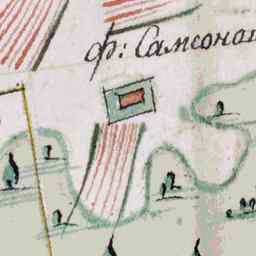 ф: Самсона